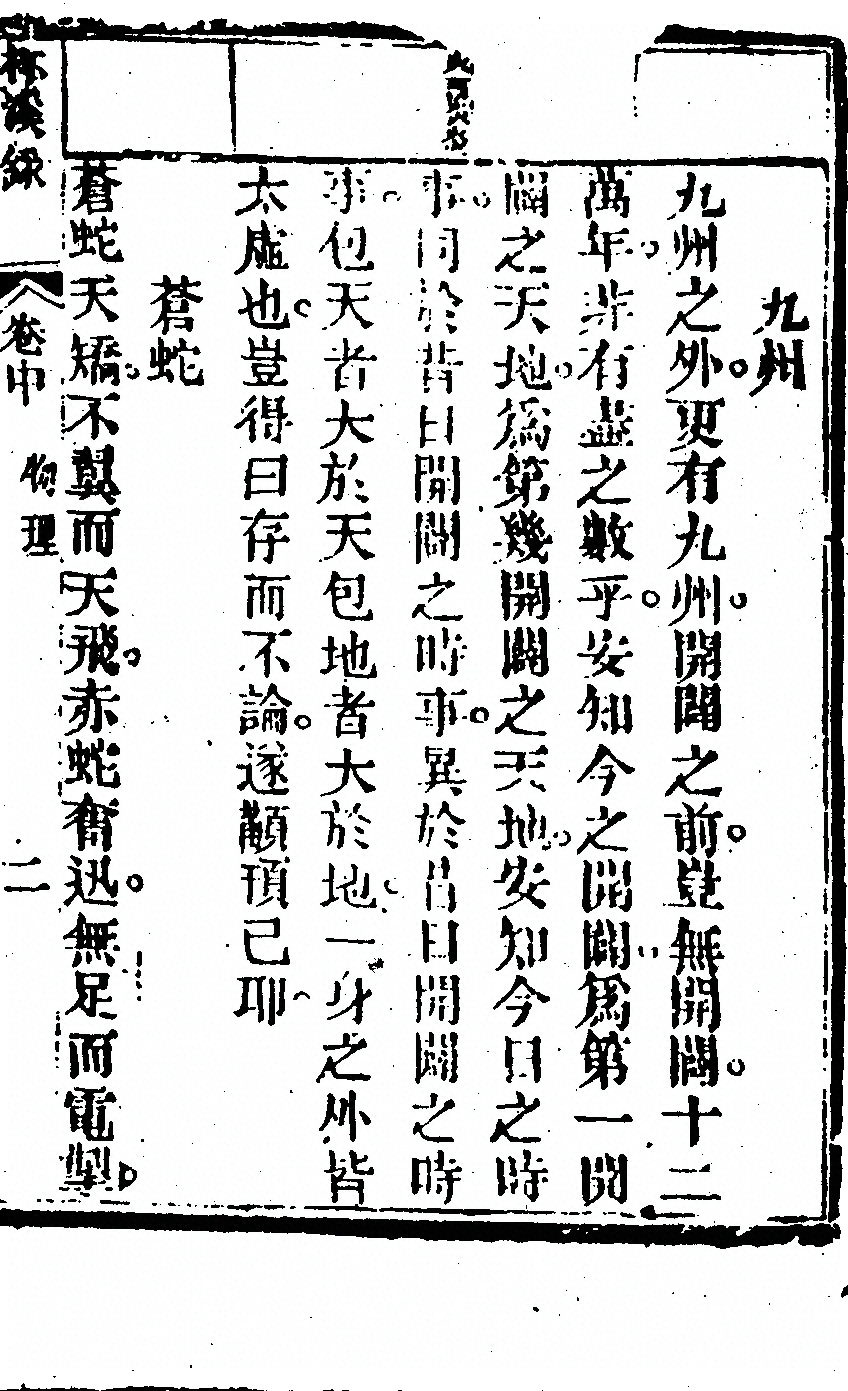 九州
九州之外更有九州開闢之前豈無開闢十二
萬年非有盡之數乎安知今之開闢爲第一開
闢之天地爲第幾開闢之天地安知今日之時
事同於昔日開闢之時事異於昔日開闢之時
事包天者大於天包地者大於地一身之外皆
太虛也豈得曰存而不論遂顢頇已耶
蒼蛇
蒼蛇天矯不翼而天飛赤蛇奮迅無足而電掣
溪錄
卷中
物理
二